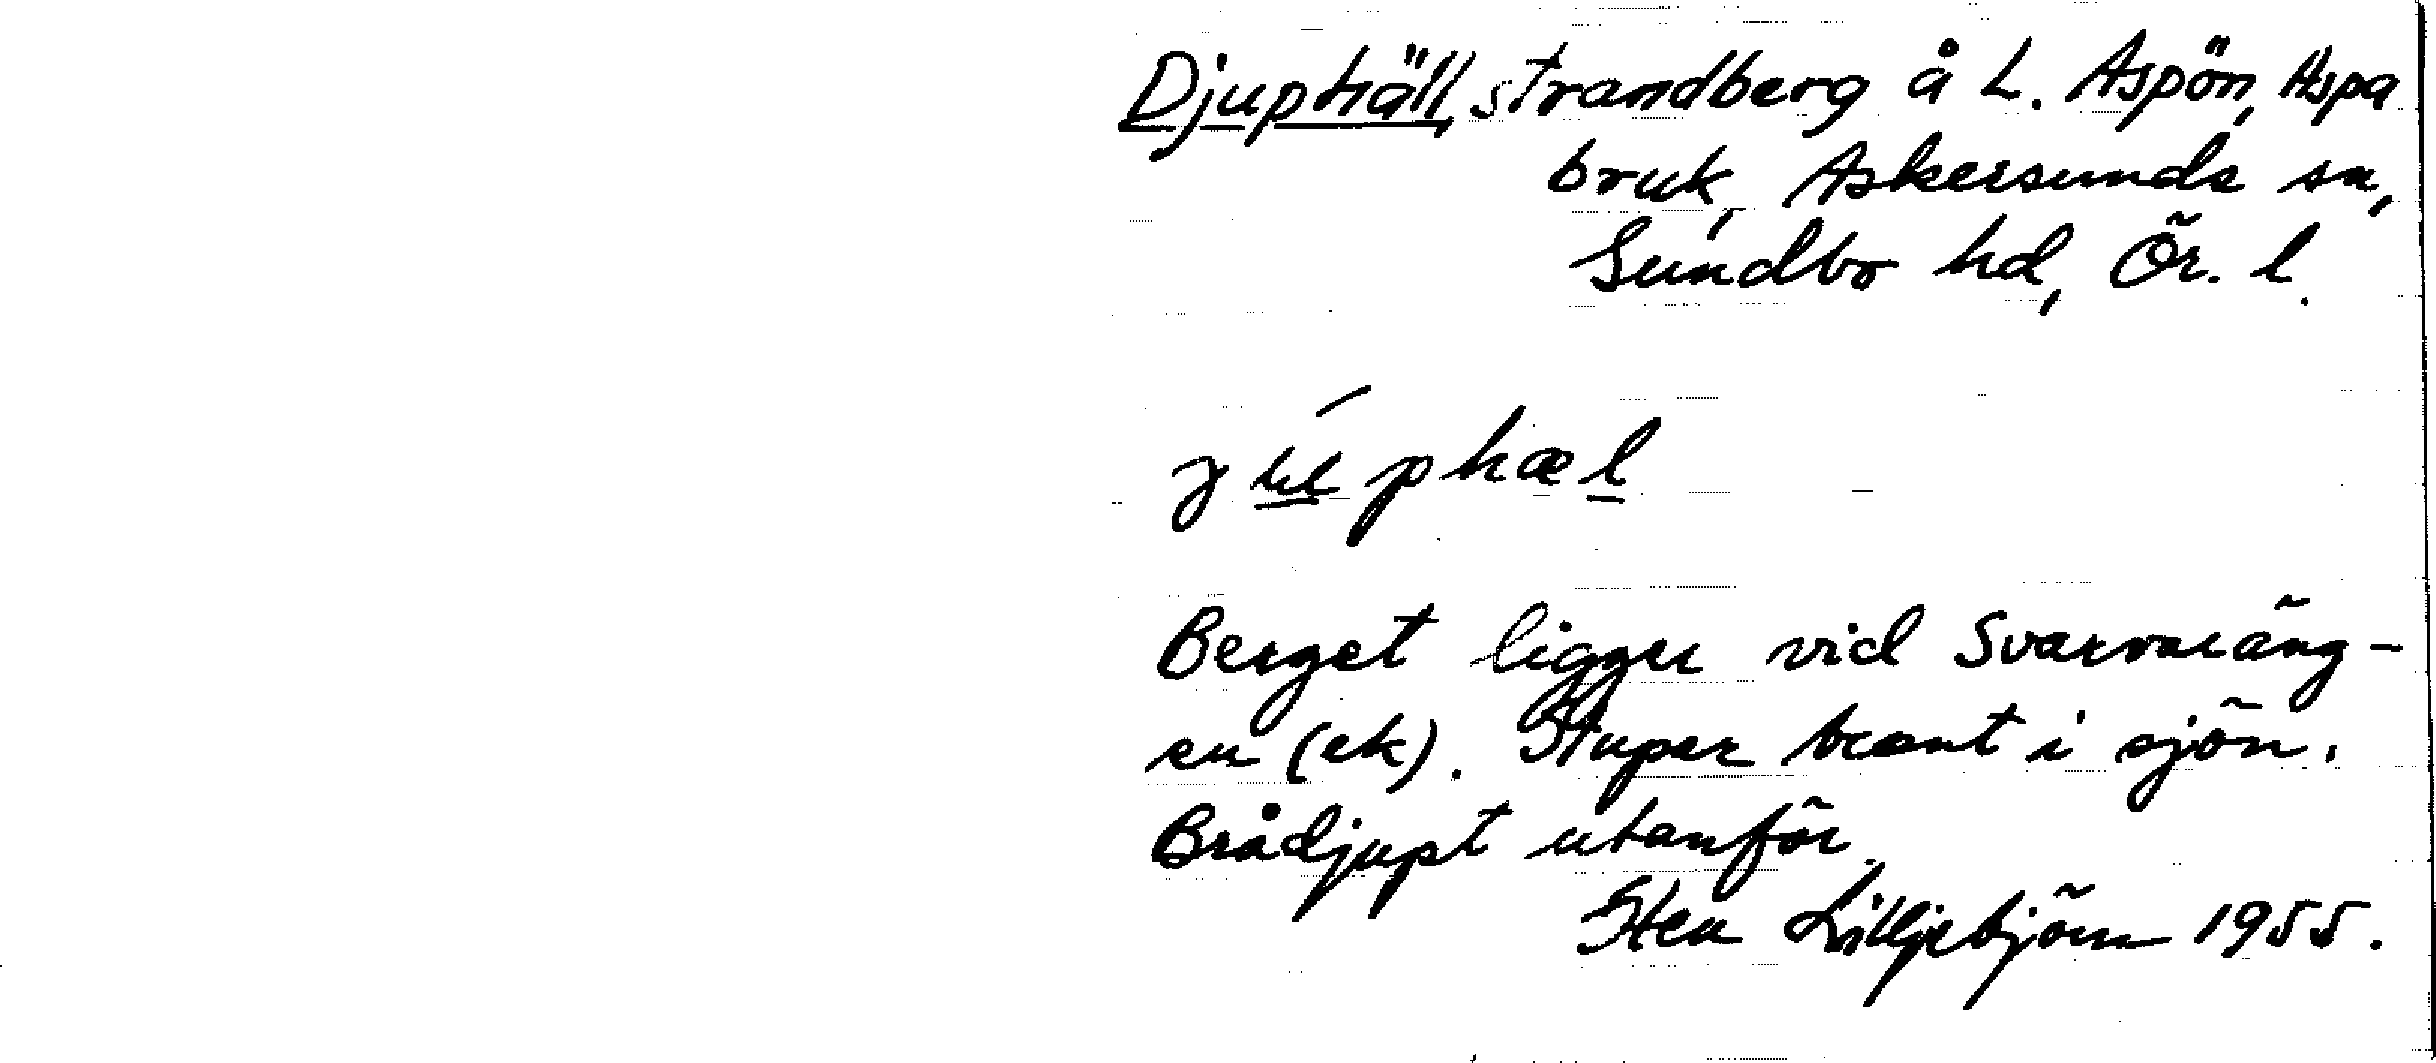 Djuphäll, strandberg å L. Aspön, Aspa
bruk, Askersunds sn,
Sundbo hd, Ör. l.
Berget ligger vid Svarvaräng-
en (ek). Stupar brant i sjön.
Brådjupt utanför.
Sten Lilljebjörn 1955.